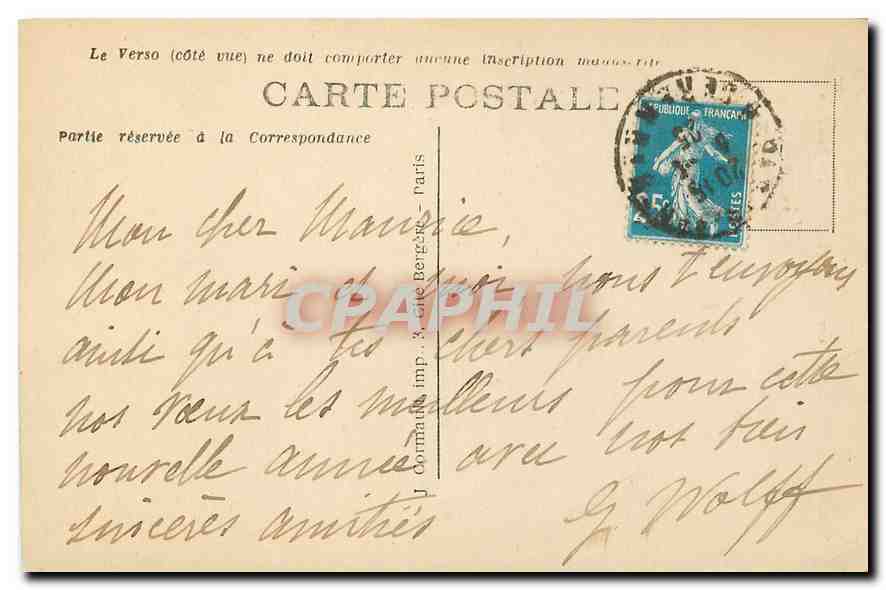 Le Verso (côté vue) ne doit comporter aucune inscription manuscrite
CARTE POSTALE
Partie réservée à la Correspondance
REPUBLIQUE FRANÇAISE
25c
POSTES
J Cormault, imp., 3, Cité Bergère - Paris
CPAPHIL
Mon cher Maurice,
Mon mari et moi, nous t'envoyons
ainsi qu'à tes chers parents
nos vœux les meilleurs pour cette
nouvelle année avec nos bien
sincères amitiés G Wolff